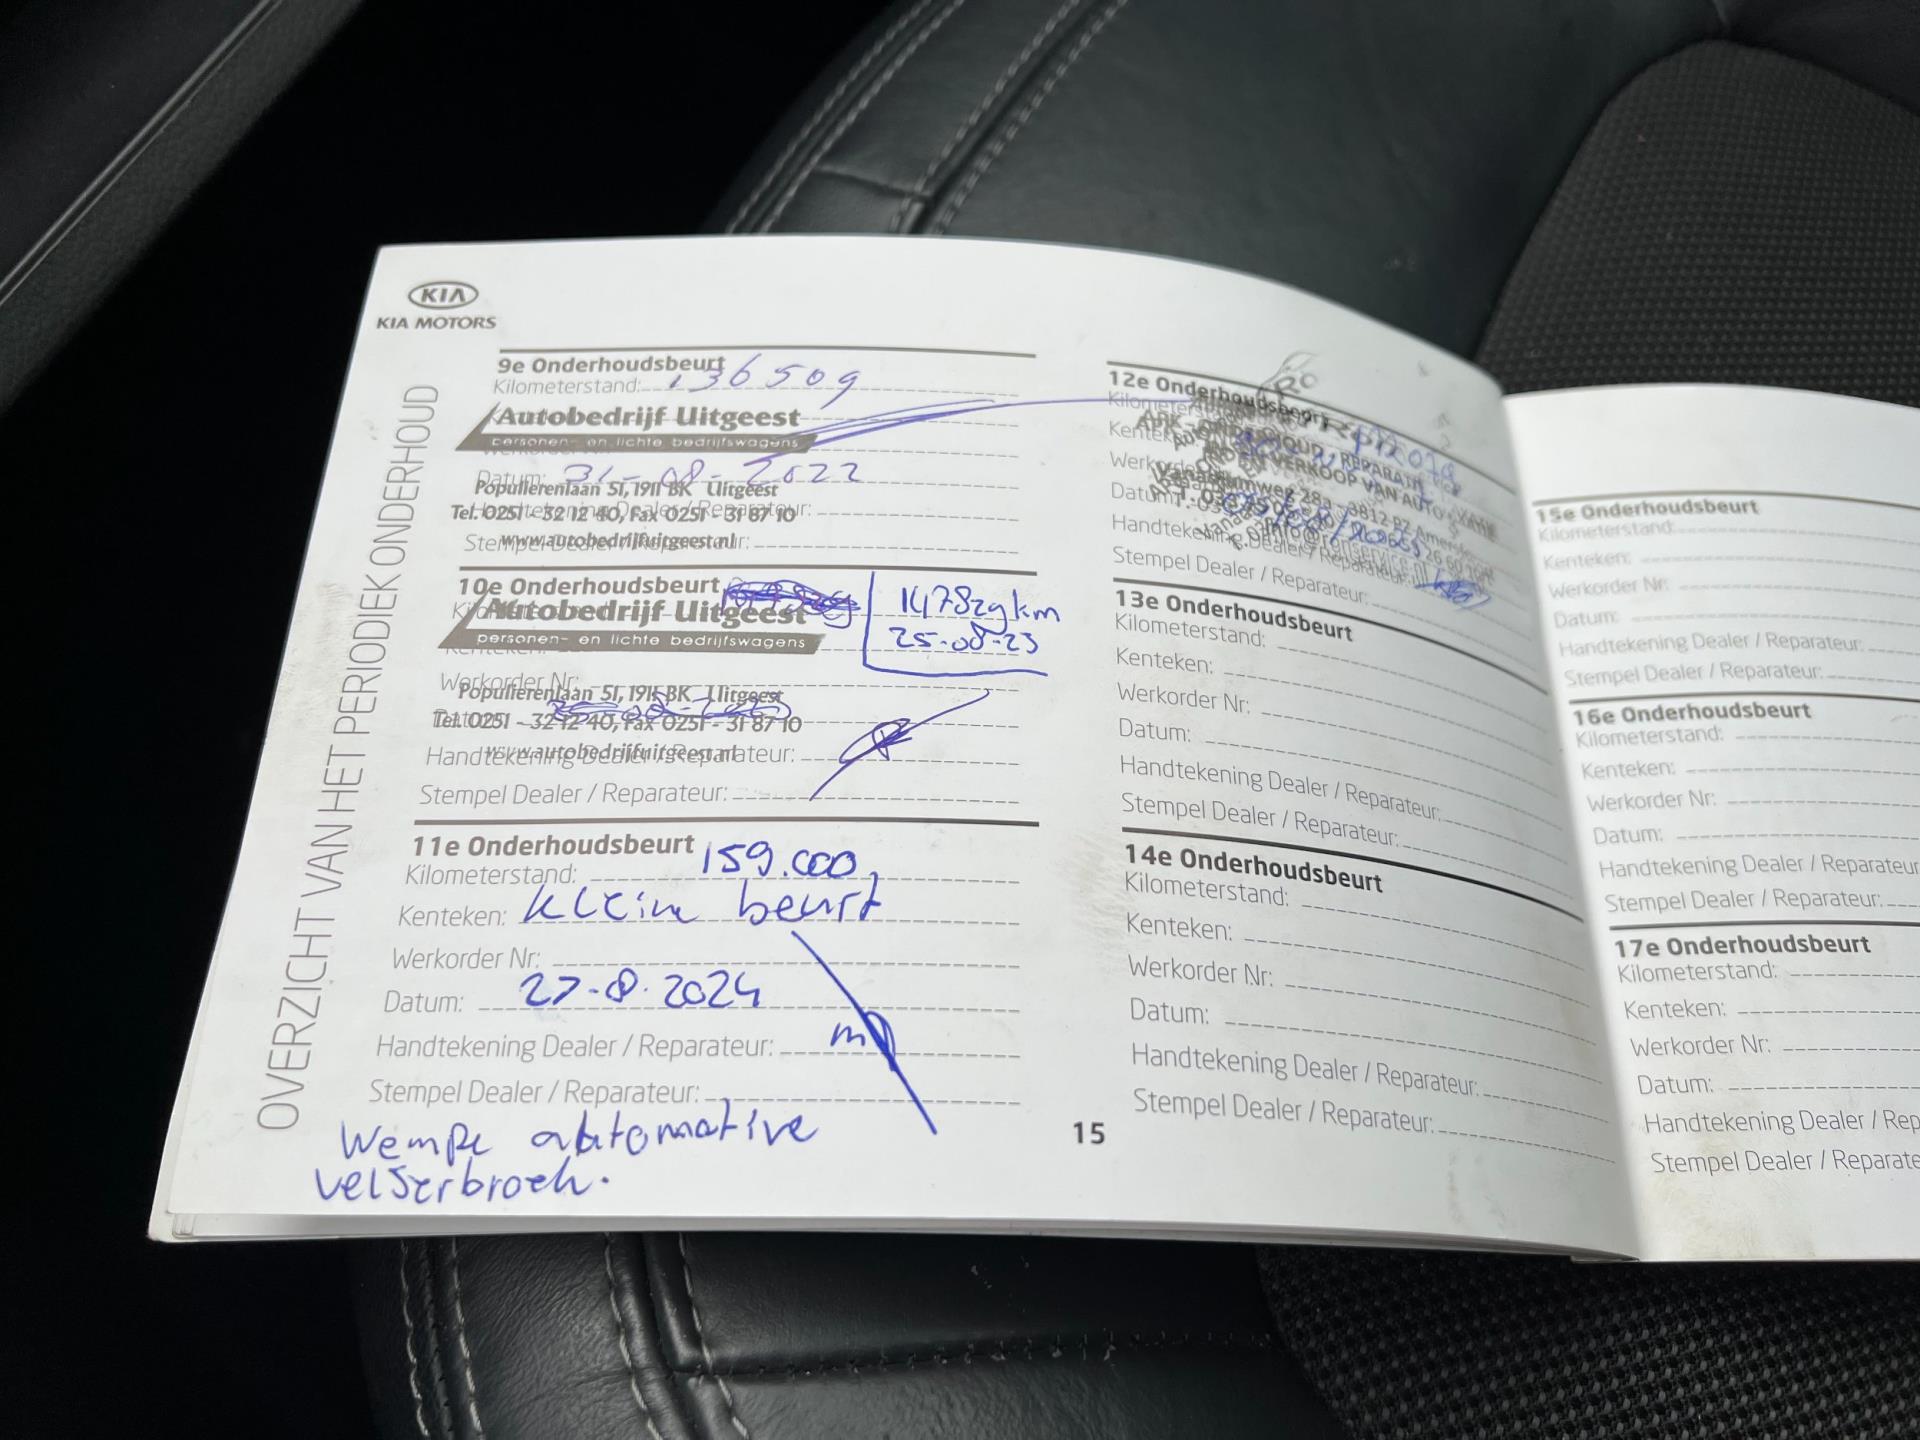 KIA
KIA MOTORS
OVERZICHT VAN HET PERIODIEK ONDERHOUD
9e Onderhoudsbeurt
Kilometerstand: 136509
Autobedrijf Uitgeest
personen- en lichte bedrijfswagens
Datum: 31-08-2022
Populierenlaan 51, 1911 BK Uitgeest
Tel. 0251 - 32 12 40, Fax 0251 - 31 87 10
www.autobedrijfuitgeest.nl
10e Onderhoudsbeurt
147829 km
25-08-23
Autobedrijf Uitgeest
personen- en lichte bedrijfswagens
Kenteken:
Werkorder Nr:
Populierenlaan 51, 1911 BK Uitgeest
Tel. 0251 - 32 12 40, Fax 0251 - 31 87 10
www.autobedrijfuitgeest.nl
Handtekening Dealer / Reparateur:
Stempel Dealer / Reparateur:
11e Onderhoudsbeurt
Kilometerstand: 159.000
Kenteken: kleine beurt
Werkorder Nr:
Datum: 27-8-2024
Handtekening Dealer / Reparateur:
Stempel Dealer / Reparateur:
Wempe automotive
velserbroek.
12e Onderhoudsbeurt
Handtekening Dealer / Reparateur:
Stempel Dealer / Reparateur:
13e Onderhoudsbeurt
Kilometerstand:
Kenteken:
Werkorder Nr:
Datum:
Handtekening Dealer / Reparateur:
Stempel Dealer / Reparateur:
14e Onderhoudsbeurt
Kilometerstand:
Kenteken:
Werkorder Nr:
Datum:
Handtekening Dealer / Reparateur:
Stempel Dealer / Reparateur:
15
15e Onderhoudsbeurt
Kilometerstand:
Kenteken:
Werkorder Nr:
Datum:
Handtekening Dealer / Reparateur:
Stempel Dealer / Reparateur:
16e Onderhoudsbeurt
Kilometerstand:
Kenteken:
Werkorder Nr:
Datum:
Handtekening Dealer / Reparateur
Stempel Dealer / Reparateur:
17e Onderhoudsbeurt
Kilometerstand:
Kenteken:
Werkorder Nr:
Datum:
Handtekening Dealer / Rep
Stempel Dealer / Reparate